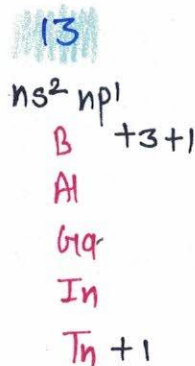 13
ns² np¹
B +3 +1
Al
Ga
In
Tn +1